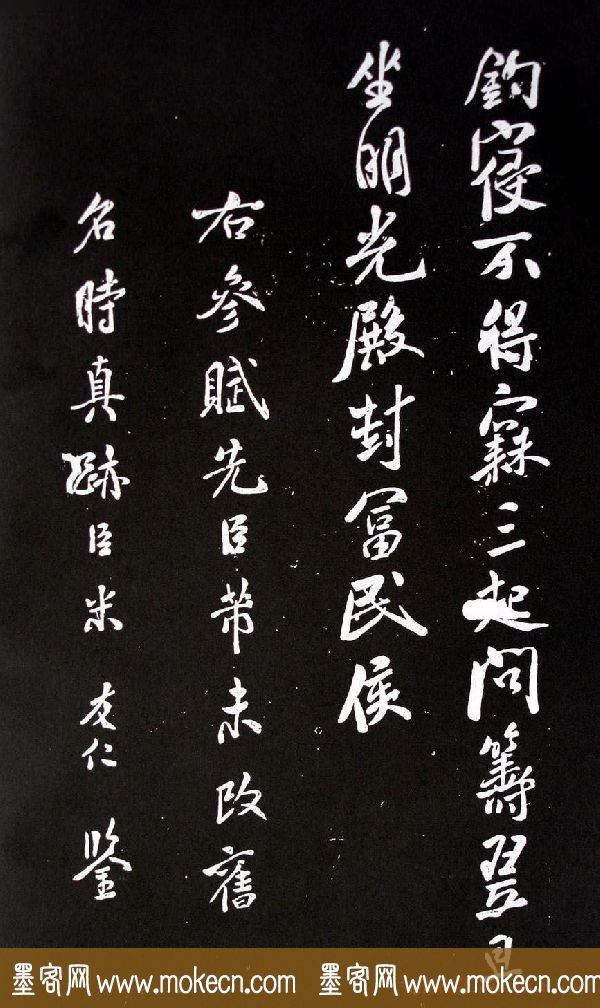 鈞寢不得寐三起問籌翌旦
坐明光殿封冨民侯
右參賦先臣芾未改舊
名時真跡臣米友仁鑒
墨客网 www.mokecn.com 墨客网 www.mokecn.com